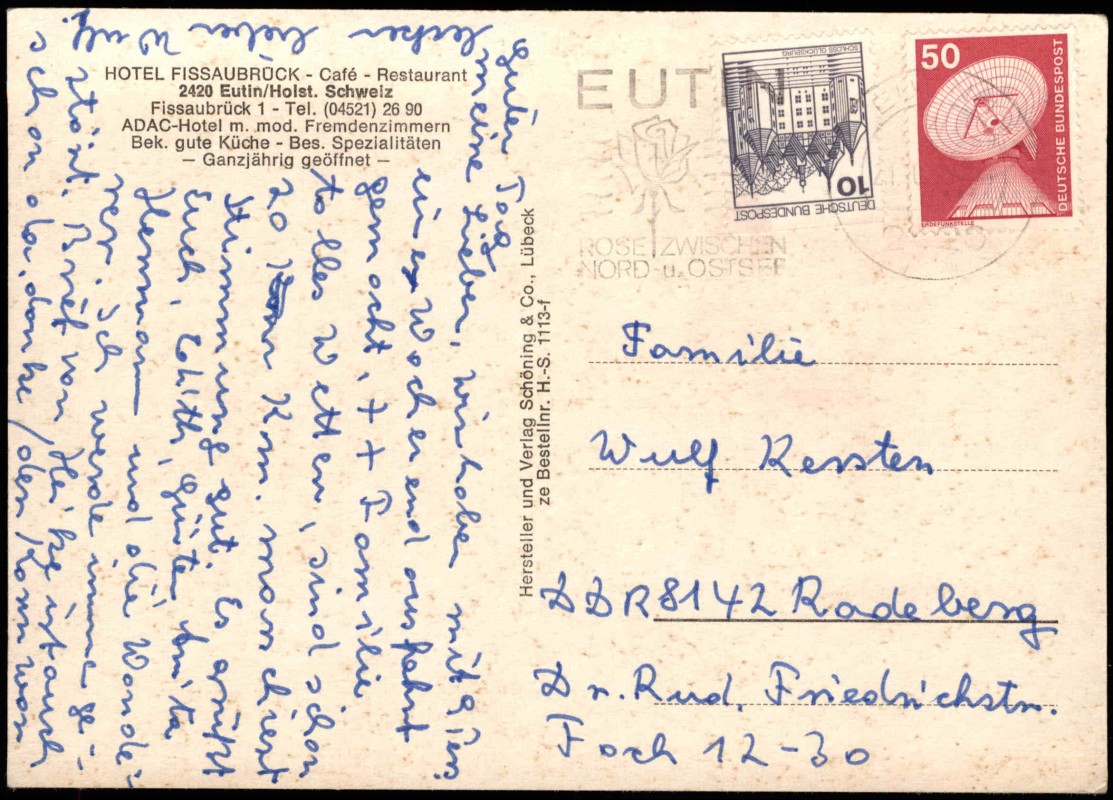 HOTEL FISSAUBRÜCK - Café - Restaurant
2420 Eutin/Holst. Schweiz
Fissaubrück 1 - Tel. (04521) 26 90
ADAC-Hotel m. mod. Fremdenzimmern
Bek. gute Küche - Bes. Spezialitäten
— Ganzjährig geöffnet —
Guten Tag
meine Lieben, wir haben mit
ein Wochenendausfahrt
gemacht, ++ Familie
tolles Wetter, sind schon
20 Km. marschiert
Stimmung gut. Es grüßt
Euch, Edith, Günter,
Hermann und die Wande-
rer. Ich werde immer ge-
stört. Brief von Heike ist auch
schon da, danke, der kann
lecker lieber Wulf
Hersteller und Verlag Schöning & Co., Lübeck
ze Bestellnr. H.-S. 1113-f
EUTIN
ROSE ZWISCHEN
NORD- u. OSTSEE
SCHLOSS GLÜCKSBURG
10
DEUTSCHE BUNDESPOST
50
DEUTSCHE BUNDESPOST
ERDEFUNKSTELLE
Familie
Wulf Kersten
DDR 8142 Radeberg
Dr. Rud. Friedrichstr.
Fach 12-30